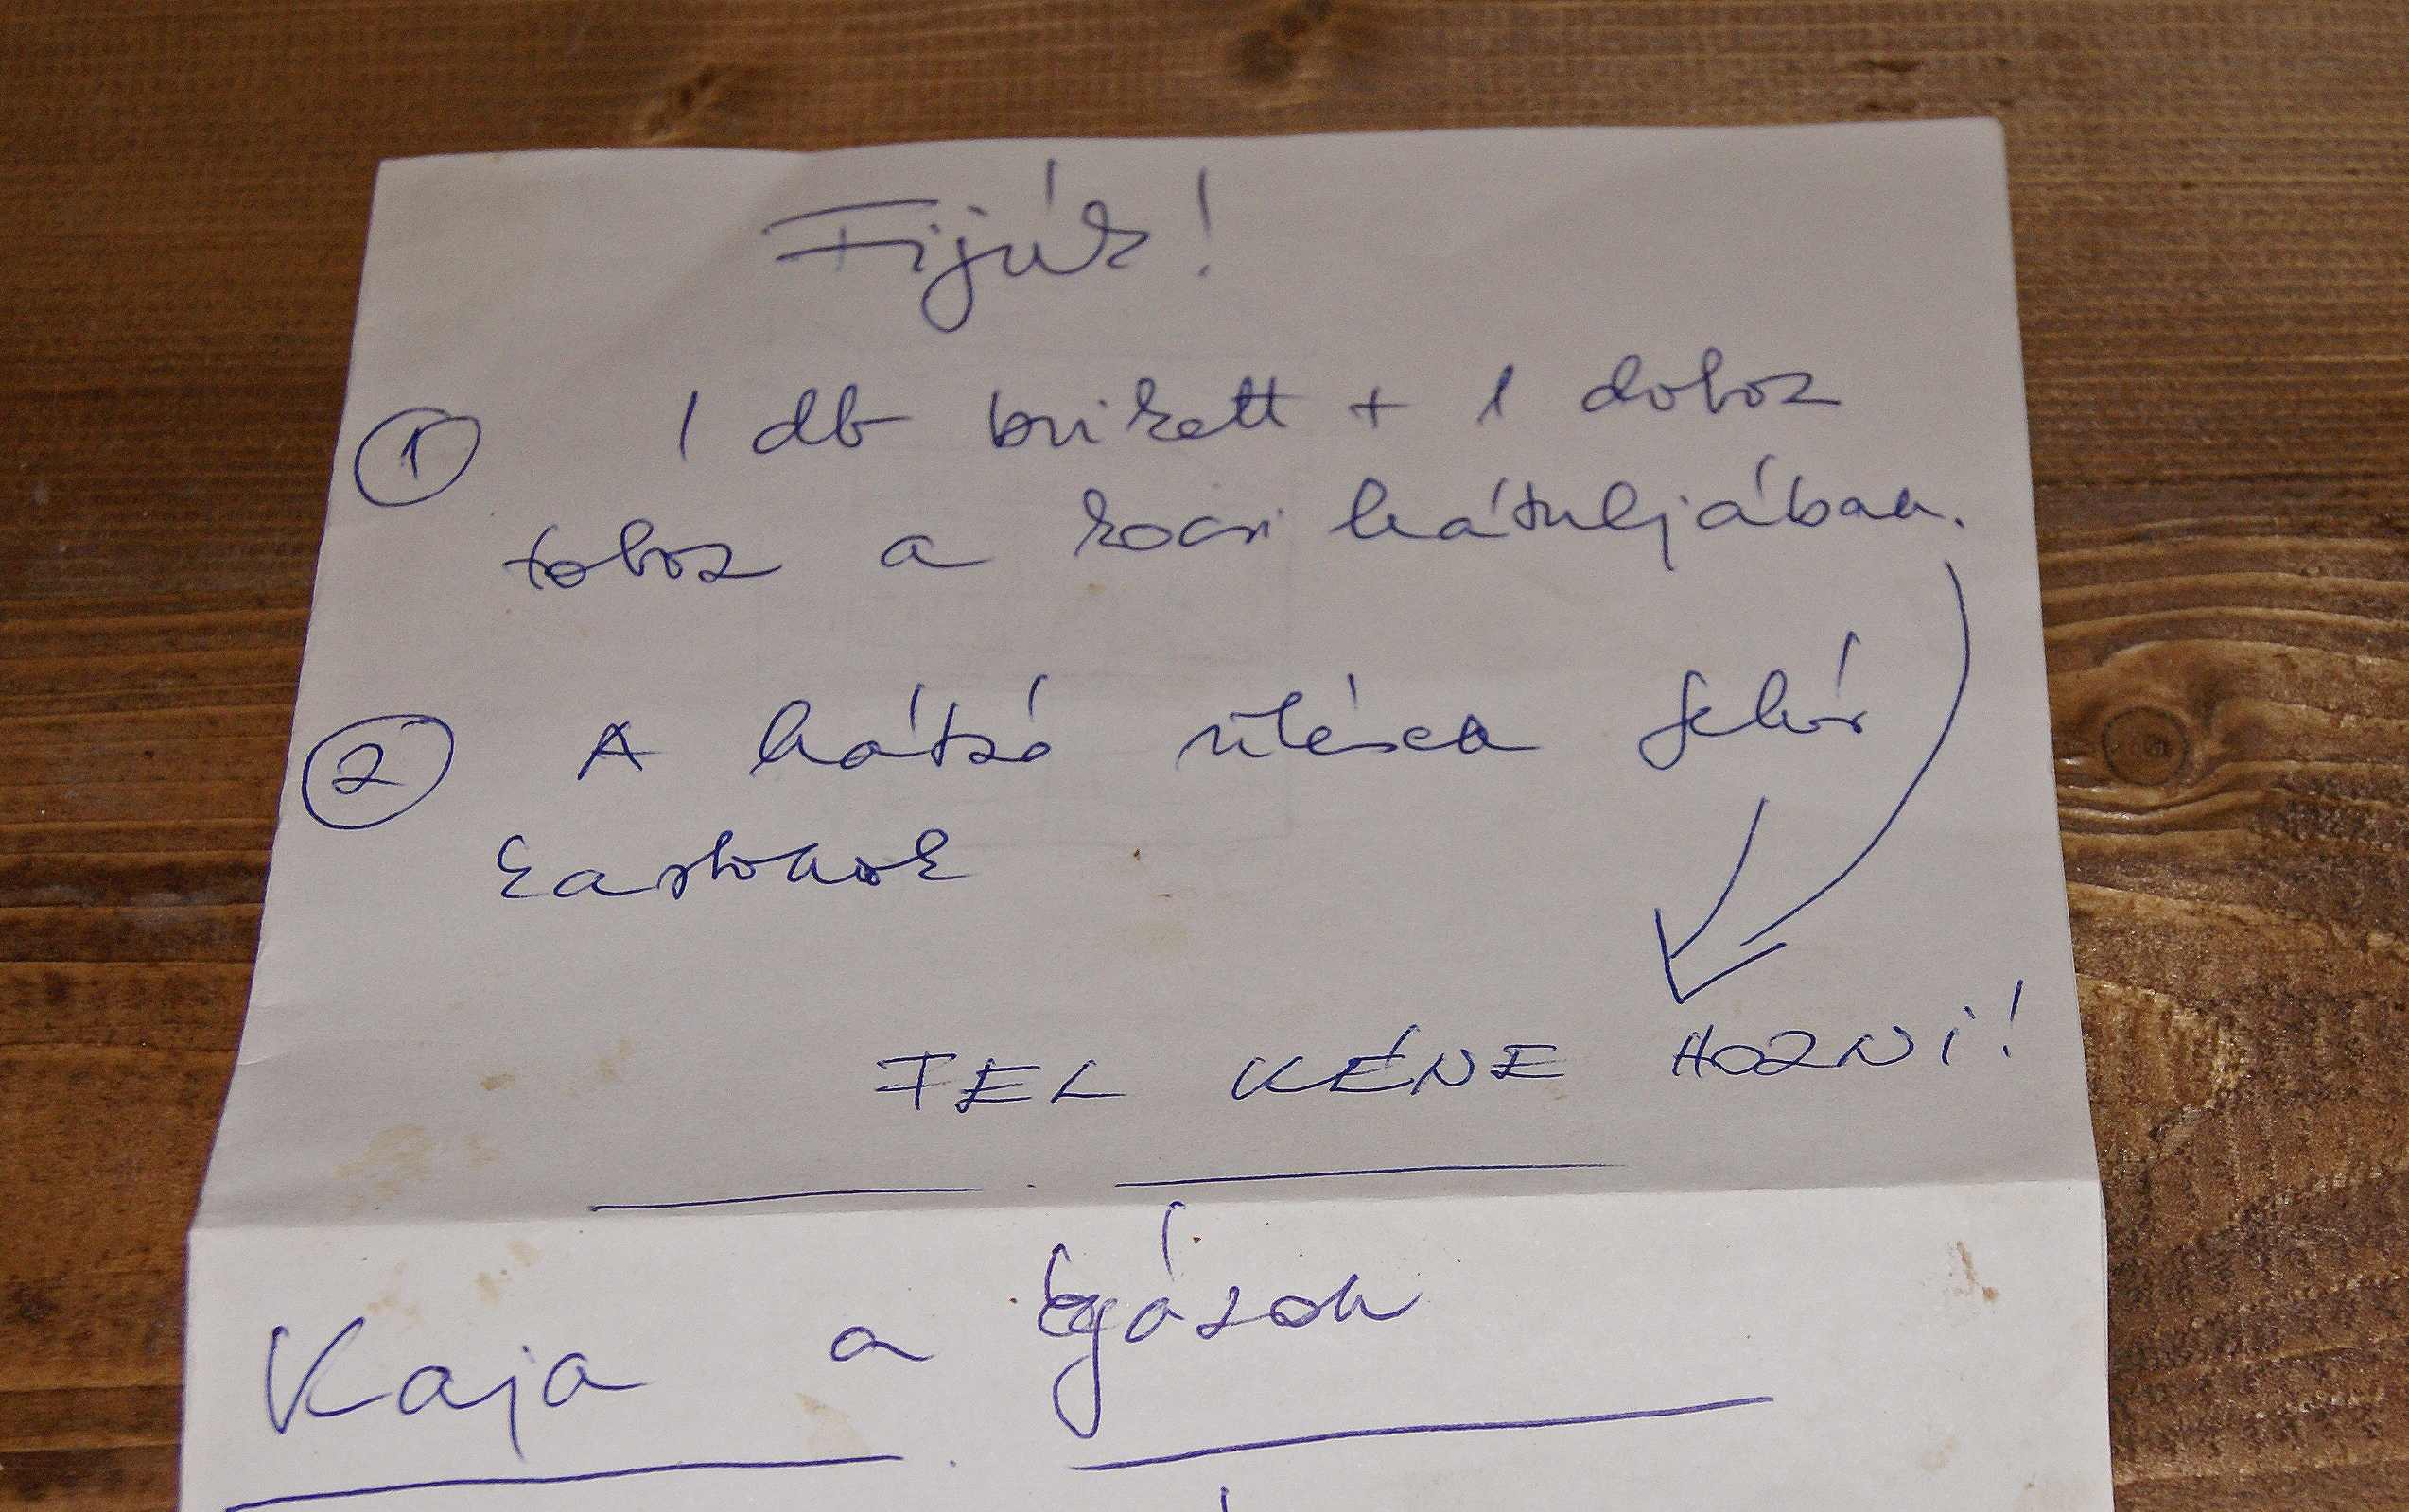 Fijúk!
① 1 db brikett + 1 doboz
toboz a kocsi hátuljában.
② A hátsó ülésen fehér
kartonok
FEL KÉNE HOZNI!
Kaja a gázon